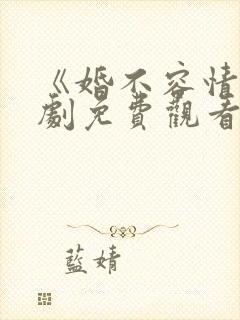 《婚不容情
劇免費觀看
藍婧